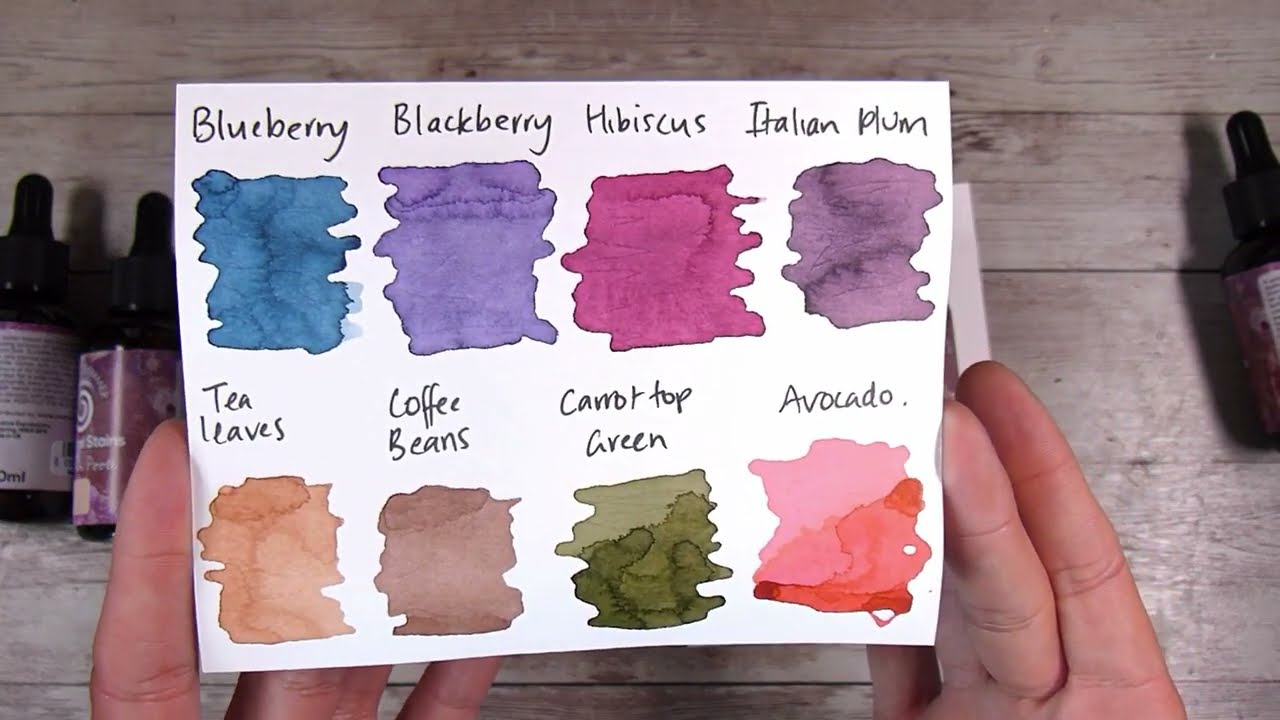 Blueberry
Blackberry
Hibiscus
Italian Plum
Tea
leaves
Coffee
Beans
Carrot top
Green
Avocado.
Stains
0ml